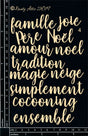 famille joie
Père Noël
amour noël
tradition
magie neige
simplement
cocooning
ensemble